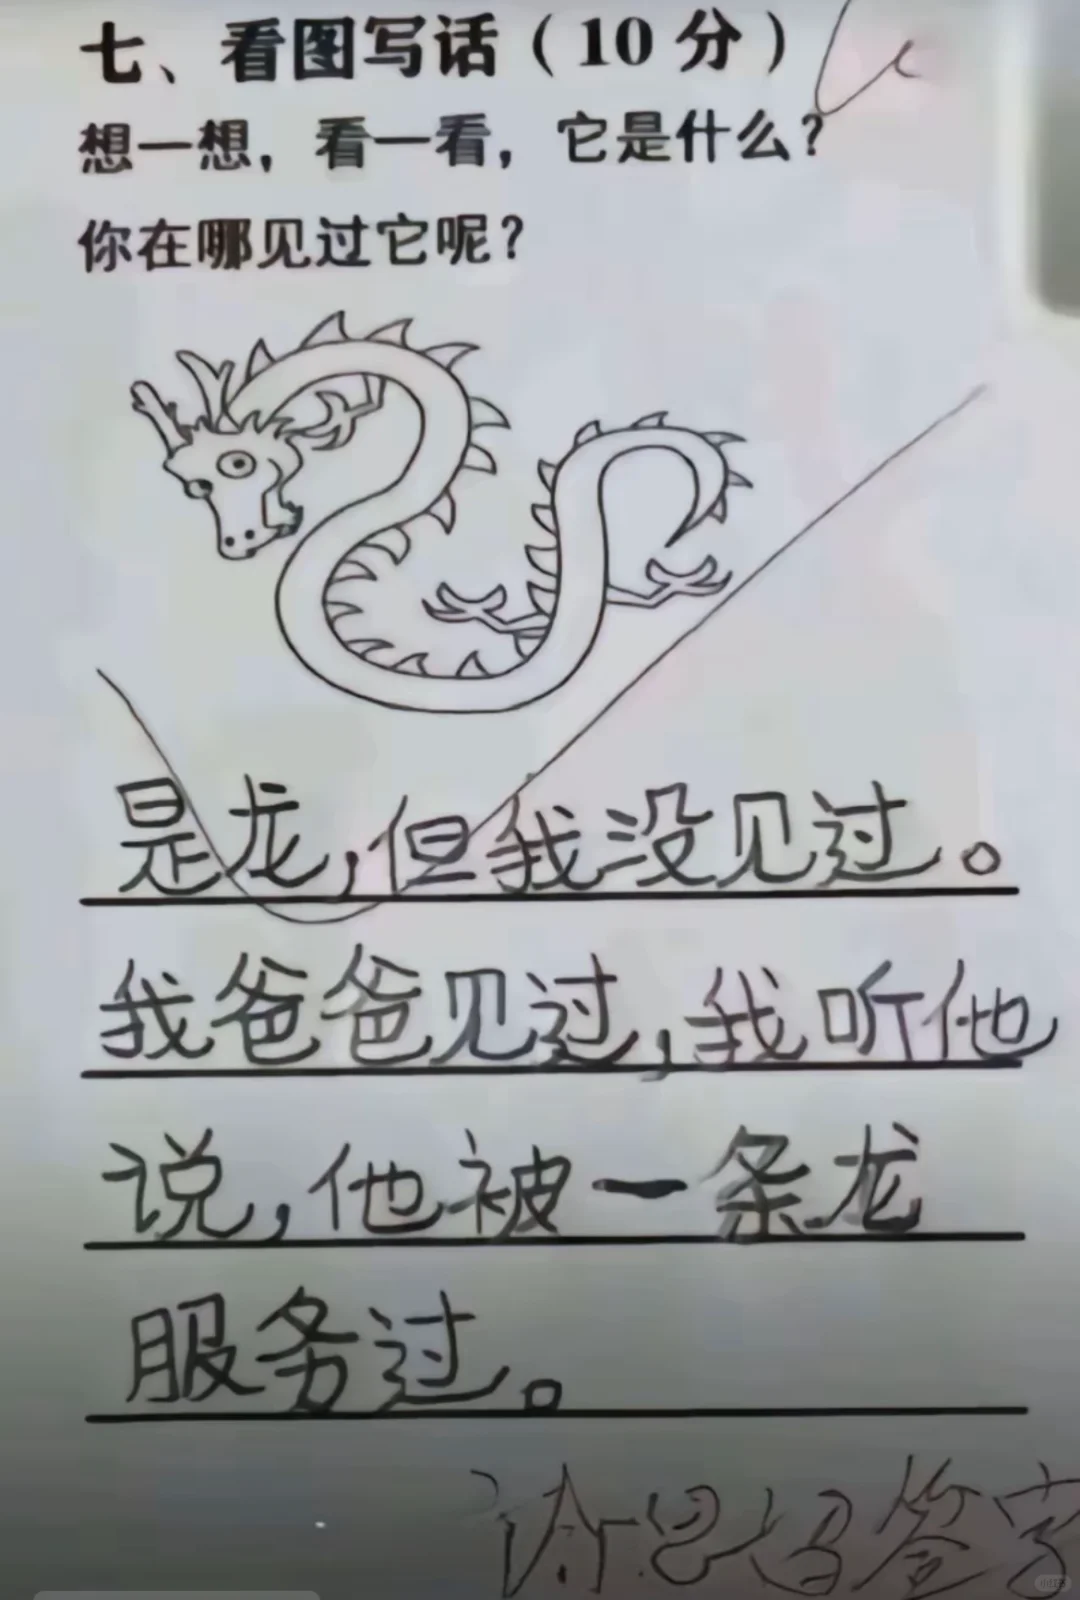 七、看图写话（10 分）
想一想，看一看，它是什么？
你在哪见过它呢？
是龙，但我没见过。
我爸爸见过，我听他
说，他被一条龙
服务过。
请 签字